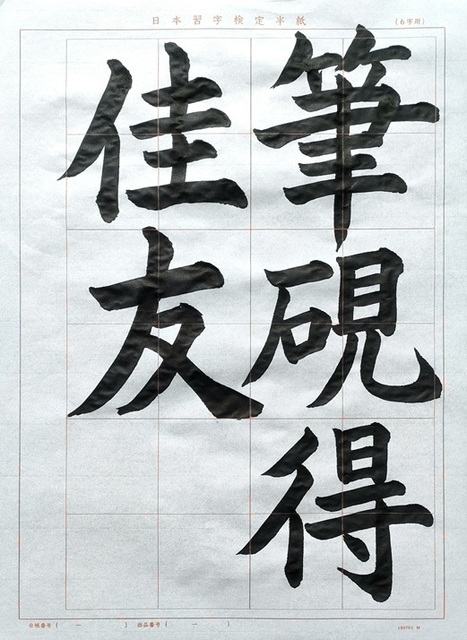 日本習字検定半紙
(6字用)
筆硯得
佳友